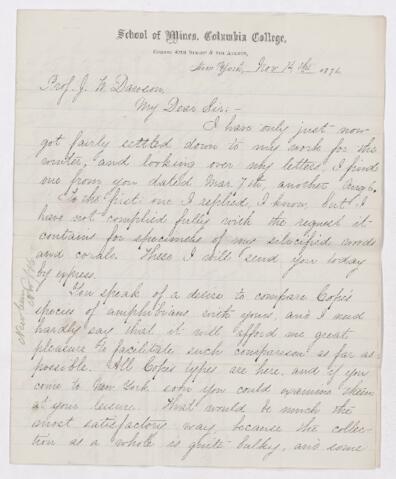 School of Mines, Columbia College,
Corner 49th Street & 4th Avenue,
New York, Nov 14th 1876
Prof. J. W. Dawson,
My Dear Sir;-
I have only just now
got fairly settled down to my work for the
winter, and looking over my letters, I find
one from you dated Mar 7th, another Aug 6.
To the first one I replied, I know, but I
have not complied fully with the request it
contains for specimens of my silicified woods
and corals. These I will send you today
by express.
You speak of a desire to compare Cope's
species of amphibians with yours, and I need
hardly say that it will afford me great
pleasure to facilitate such comparison as far as
possible. All Cope's types are here, and if you
come to New York soon you could examine them
at your leisure. That would be much the
most satisfactory way, because the collec-
tion as a whole is quite bulky, and some